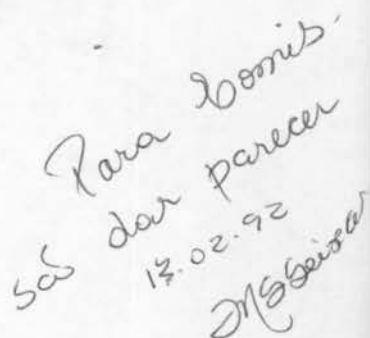 Para Comis-
são dar parecer
13.02.92